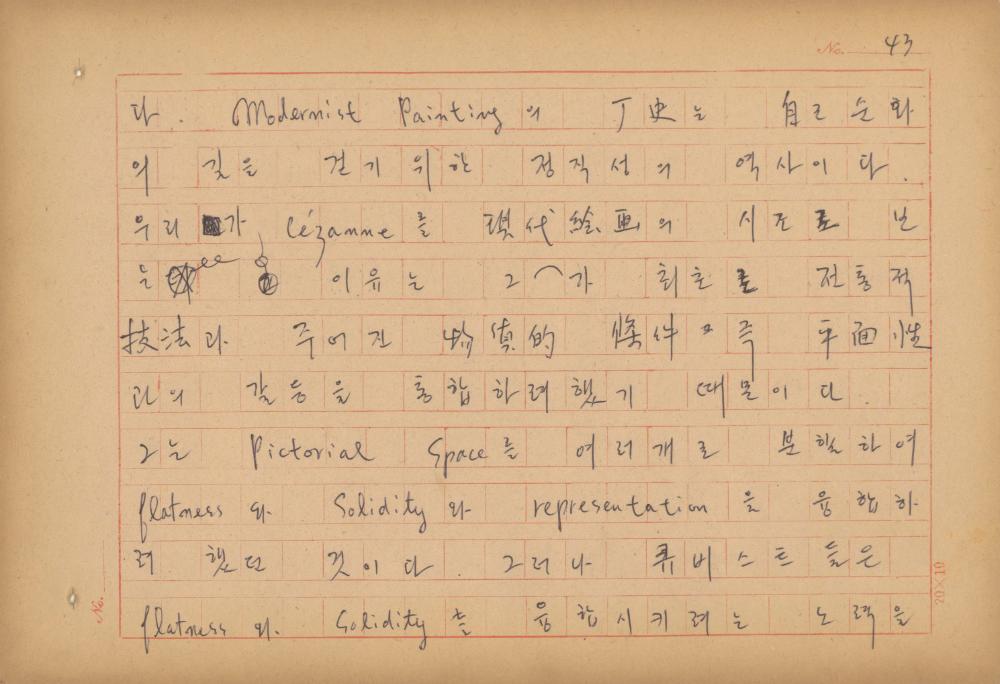 No. 43
다. Modernist Painting의 丁史는 自己순화
의 길을 걷기 위한 정직성의 역사이다.
우리가 Cézanne를 現代絵画의 시조로 보
는 이유는 그가 최초로 전통적
技法과 주어진 物質的 條件 즉 平面性
과의 갈등을 통합하려했기 때문이다.
그는 Pictorial Space를 여러개로 분할하여
flatness와 Solidity와 representation을 융합하
려 했던 것이다. 그러나 큐비스트들은
flatness와 Solidity를 융합시키려는 노력을
No.
20×10